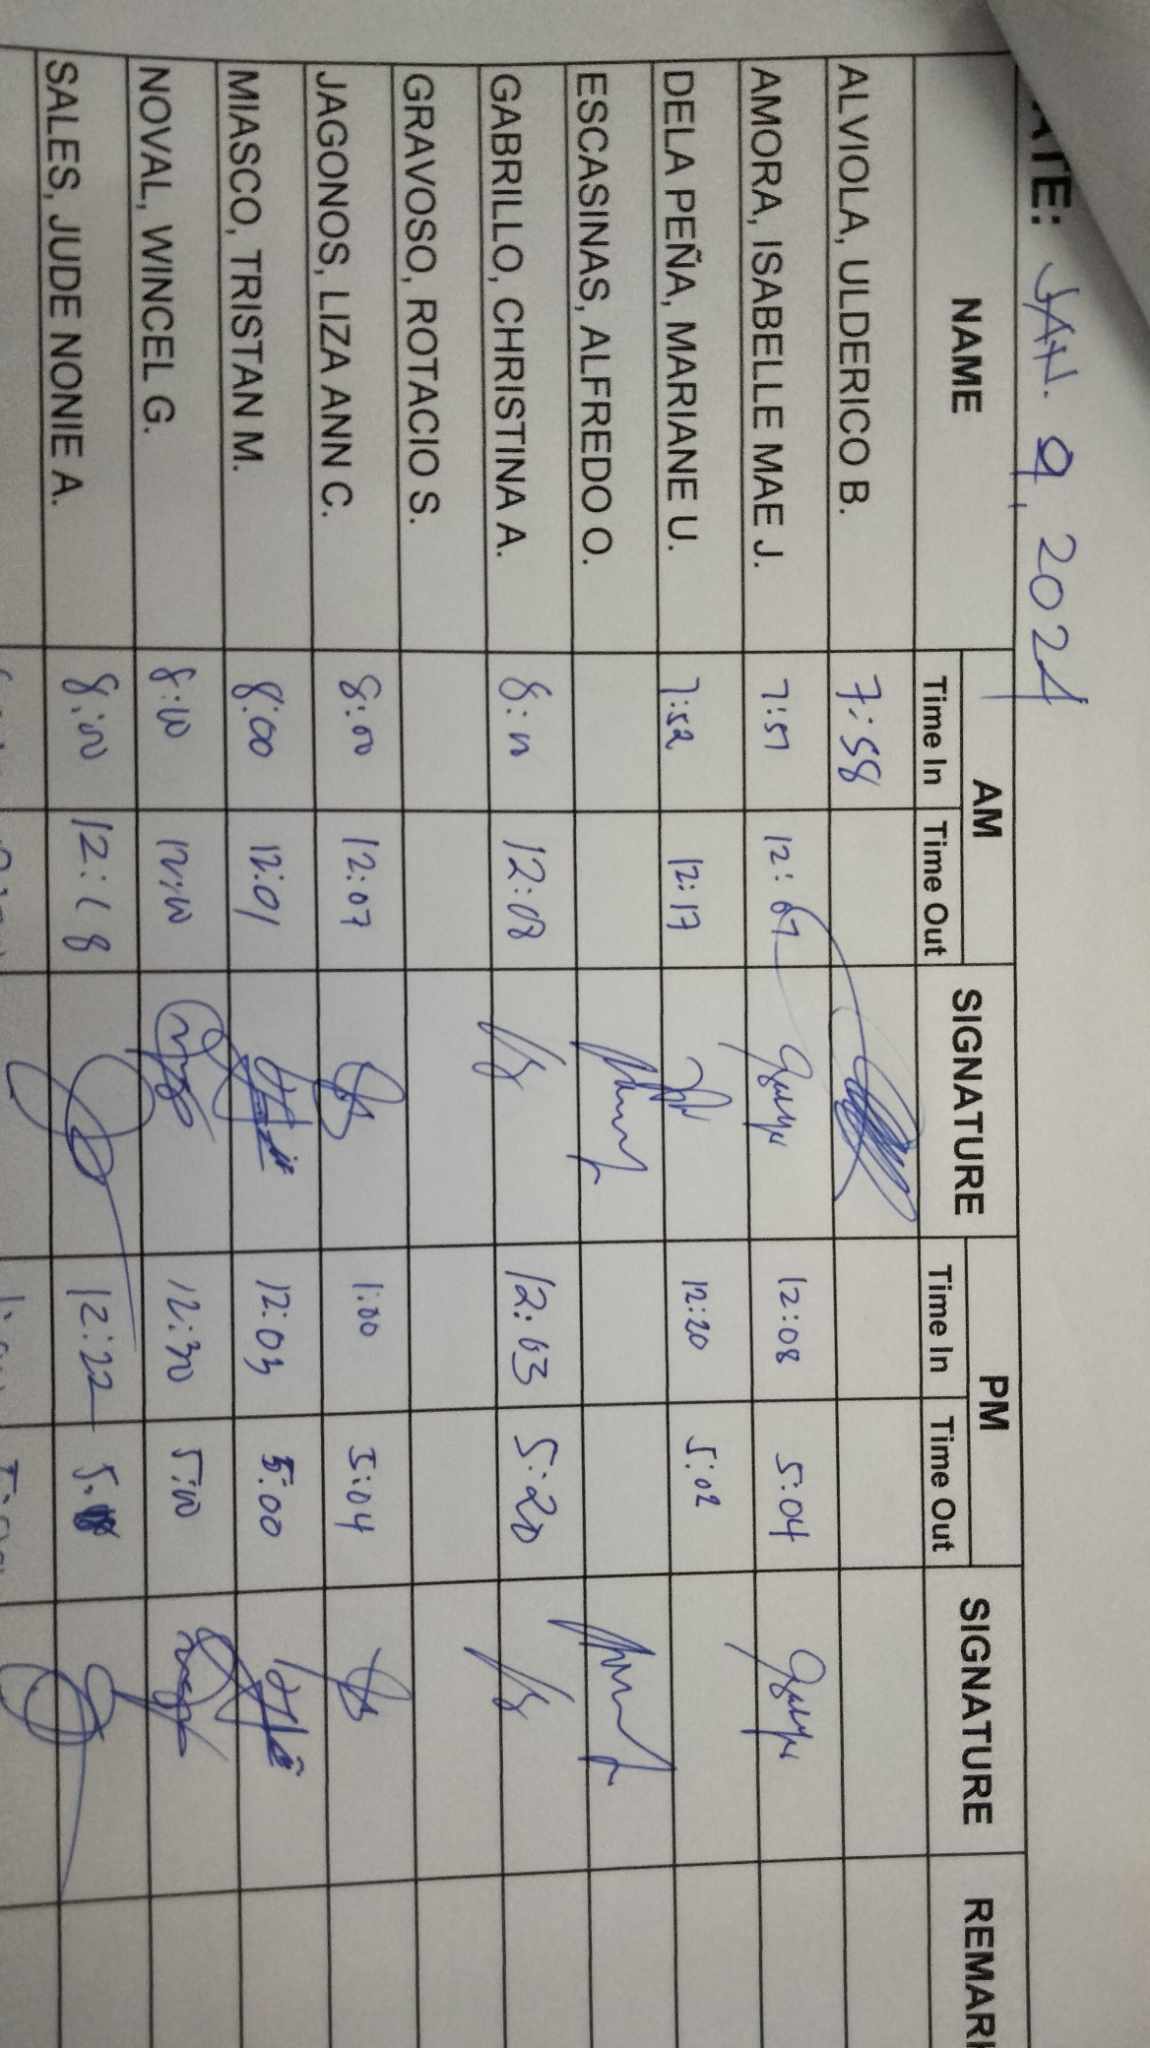 ATE: JAN. 9, 2024
NAME AM SIGNATURE PM SIGNATURE REMAR
Time In Time Out Time In Time Out
ALVIOLA, ULDERICO B. 7:58
AMORA, ISABELLE MAE J. 7:57 12:07 12:08 5:04
DELA PEÑA, MARIANE U. 7:52 12:17 12:20 5:02
ESCASINAS, ALFREDO O.
GABRILLO, CHRISTINA A. 8:00 12:08 12:03 5:20
GRAVOSO, ROTACIO S.
JAGONOS, LIZA ANN C. 8:00 12:07 1:00 5:04
MIASCO, TRISTAN M. 8:00 12:01 12:03 5:00
NOVAL, WINCEL G. 8:00 12:00 12:30 5:00
SALES, JUDE NONIE A. 8:00 12:18 12:22